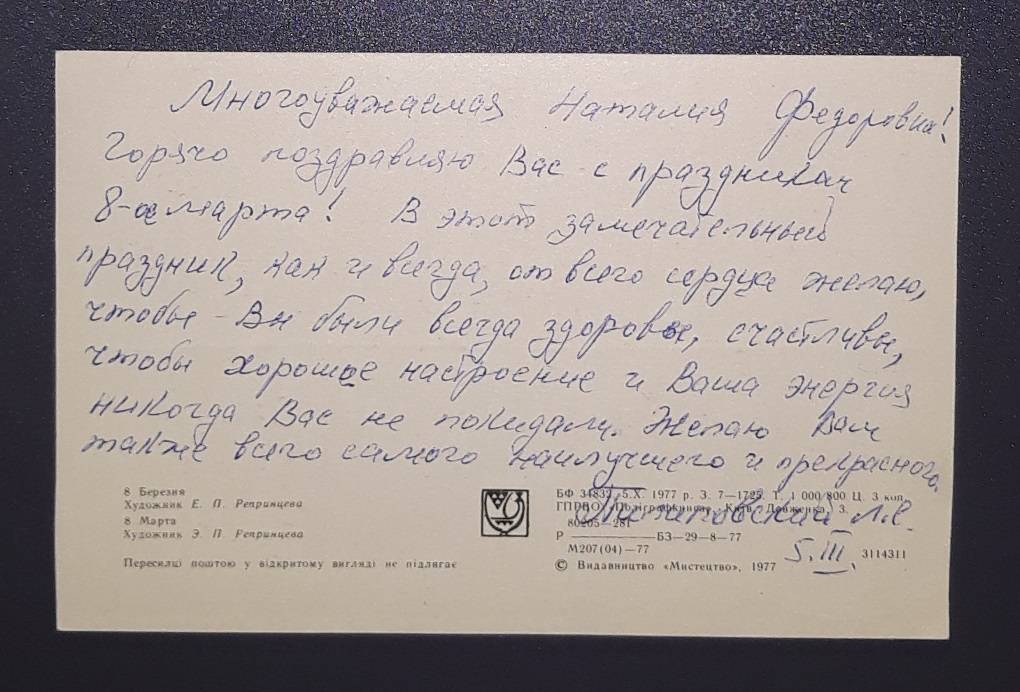 Многоуважаемая Наталия Федоровна!
Горячо поздравляю Вас с праздником
8-ое марта! В этот замечательный
праздник, как и всегда, от всего сердца желаю,
чтобы Вы были всегда здоровы, счастливы,
чтобы хорошее настроение и Ваша энергия
никогда Вас не покидали. Желаю Вам
также всего самого наилучшего и прекрасного.
8 Березня
Художник Е. П. Репринцева
8 Марта
Художник Э. П. Репринцева
Пересилці поштою у відкритому вигляді не підлягає
БФ 34832. 5.X. 1977 р. З. 7—1725. Т. 1 000 800 Ц. 3 коп.
ГПРВО «Поліграфкнига», Київ, Довженка, 3.
80205—281
Р БЗ—29—8—77
М207(04)—77
© Видавництво «Мистецтво», 1977
Л.С.
5.III.
3114311